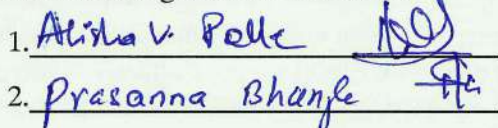 1. Alisha V. Palle
2. Prasanna Bhangle